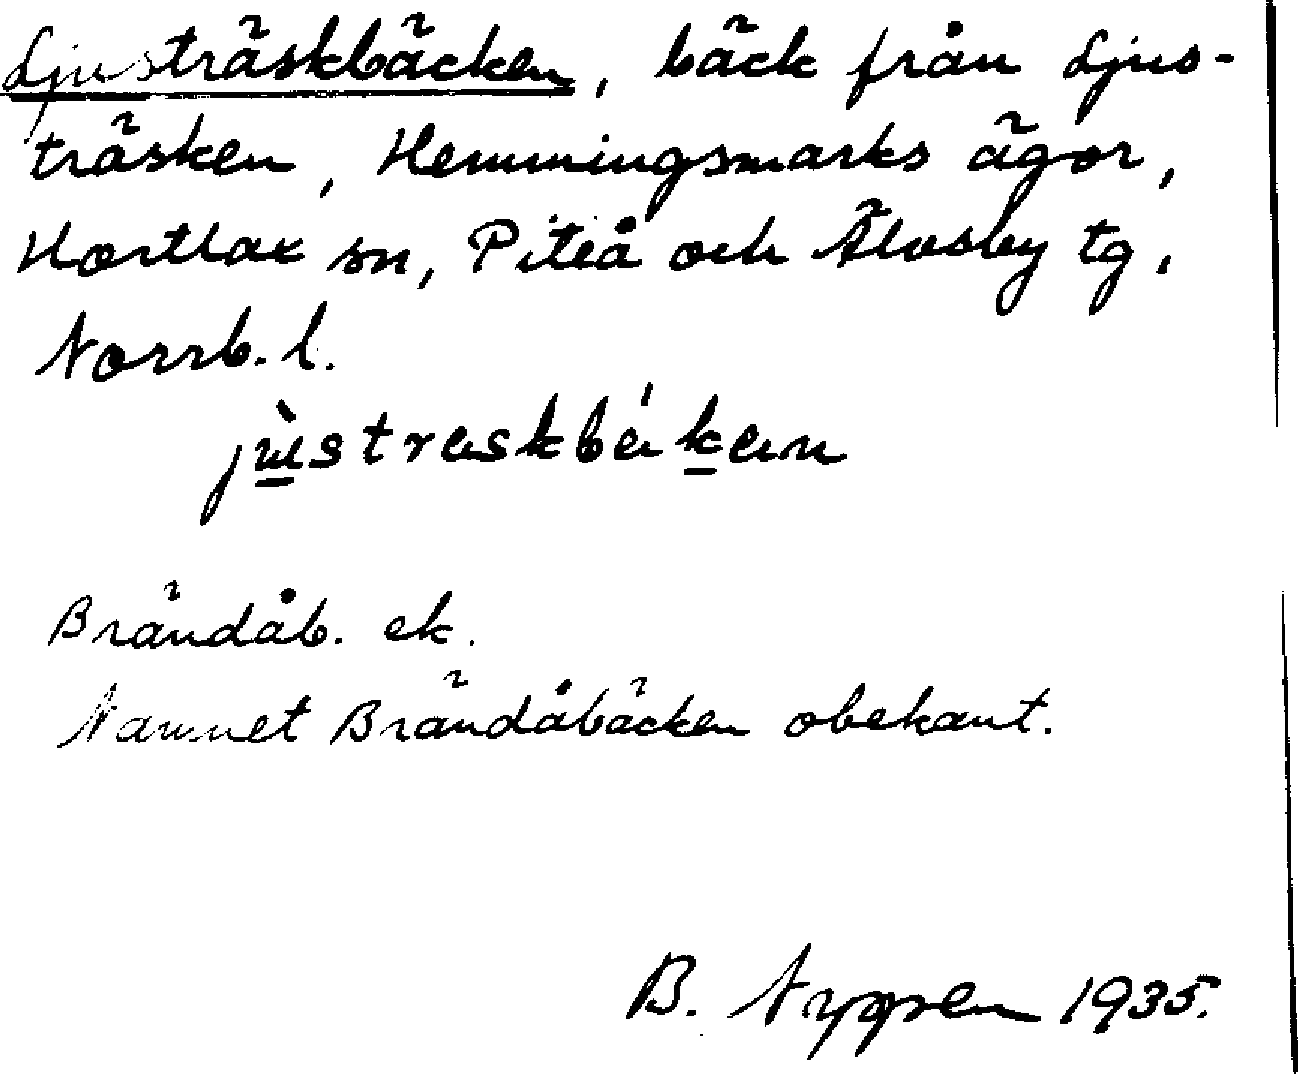 Ljusträskbäcken, bäck från Ljus-
träsken, Hemmingsmarks ägor,
Hortlax sn, Piteå och Älvsby tg,
Norrb. l.
jùstreskbéken
Brändåb. ek.
Namnet Brändåbäcken obekant.
B. Nygren 1935.